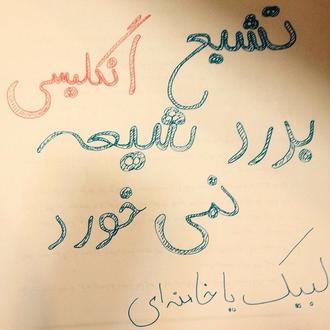 تشیع انگلیسی
بدرد شیعه
نمی خورد
لبیک یا خامنه ای